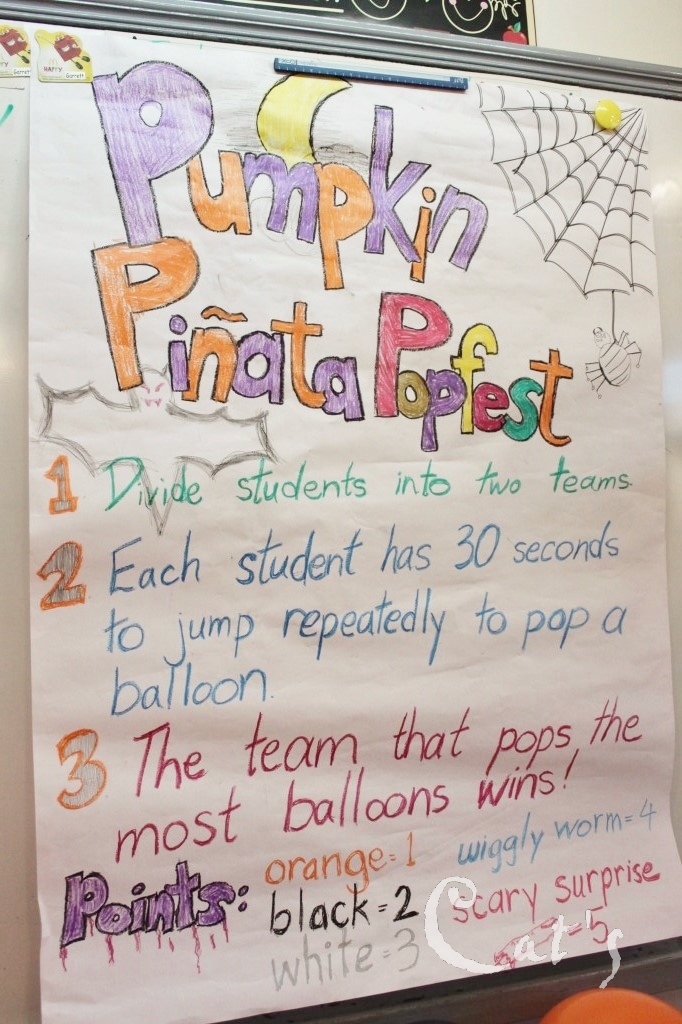 HAPPY
Garrett
Pumpkin
Piñata Popfest
1 Divide students into two teams.
2 Each student has 30 seconds
to jump repeatedly to pop a
balloon.
3 The team that pops the
most balloons wins!
Points:
orange=1
black=2
white=3
wiggly worm=4
scary surprise
=5
Cat's